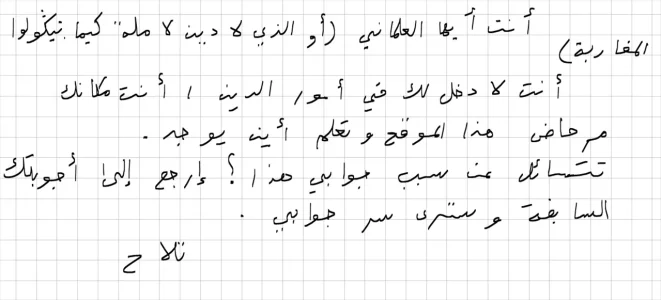 أنت أيها العلماني (أو الذي لا دين لا ملة" كيما تيڭولوا
المغاربة)
أنت لا دخل لك في أمور الدين، أنت مكانك
مرحاض هذا الموقع وتعلم أين يوجد.
تتسائل عن سبب جوابي هذا؟ إرجع إلى أجوبتك
السابقة وسترى سر جوابي.
تلاح